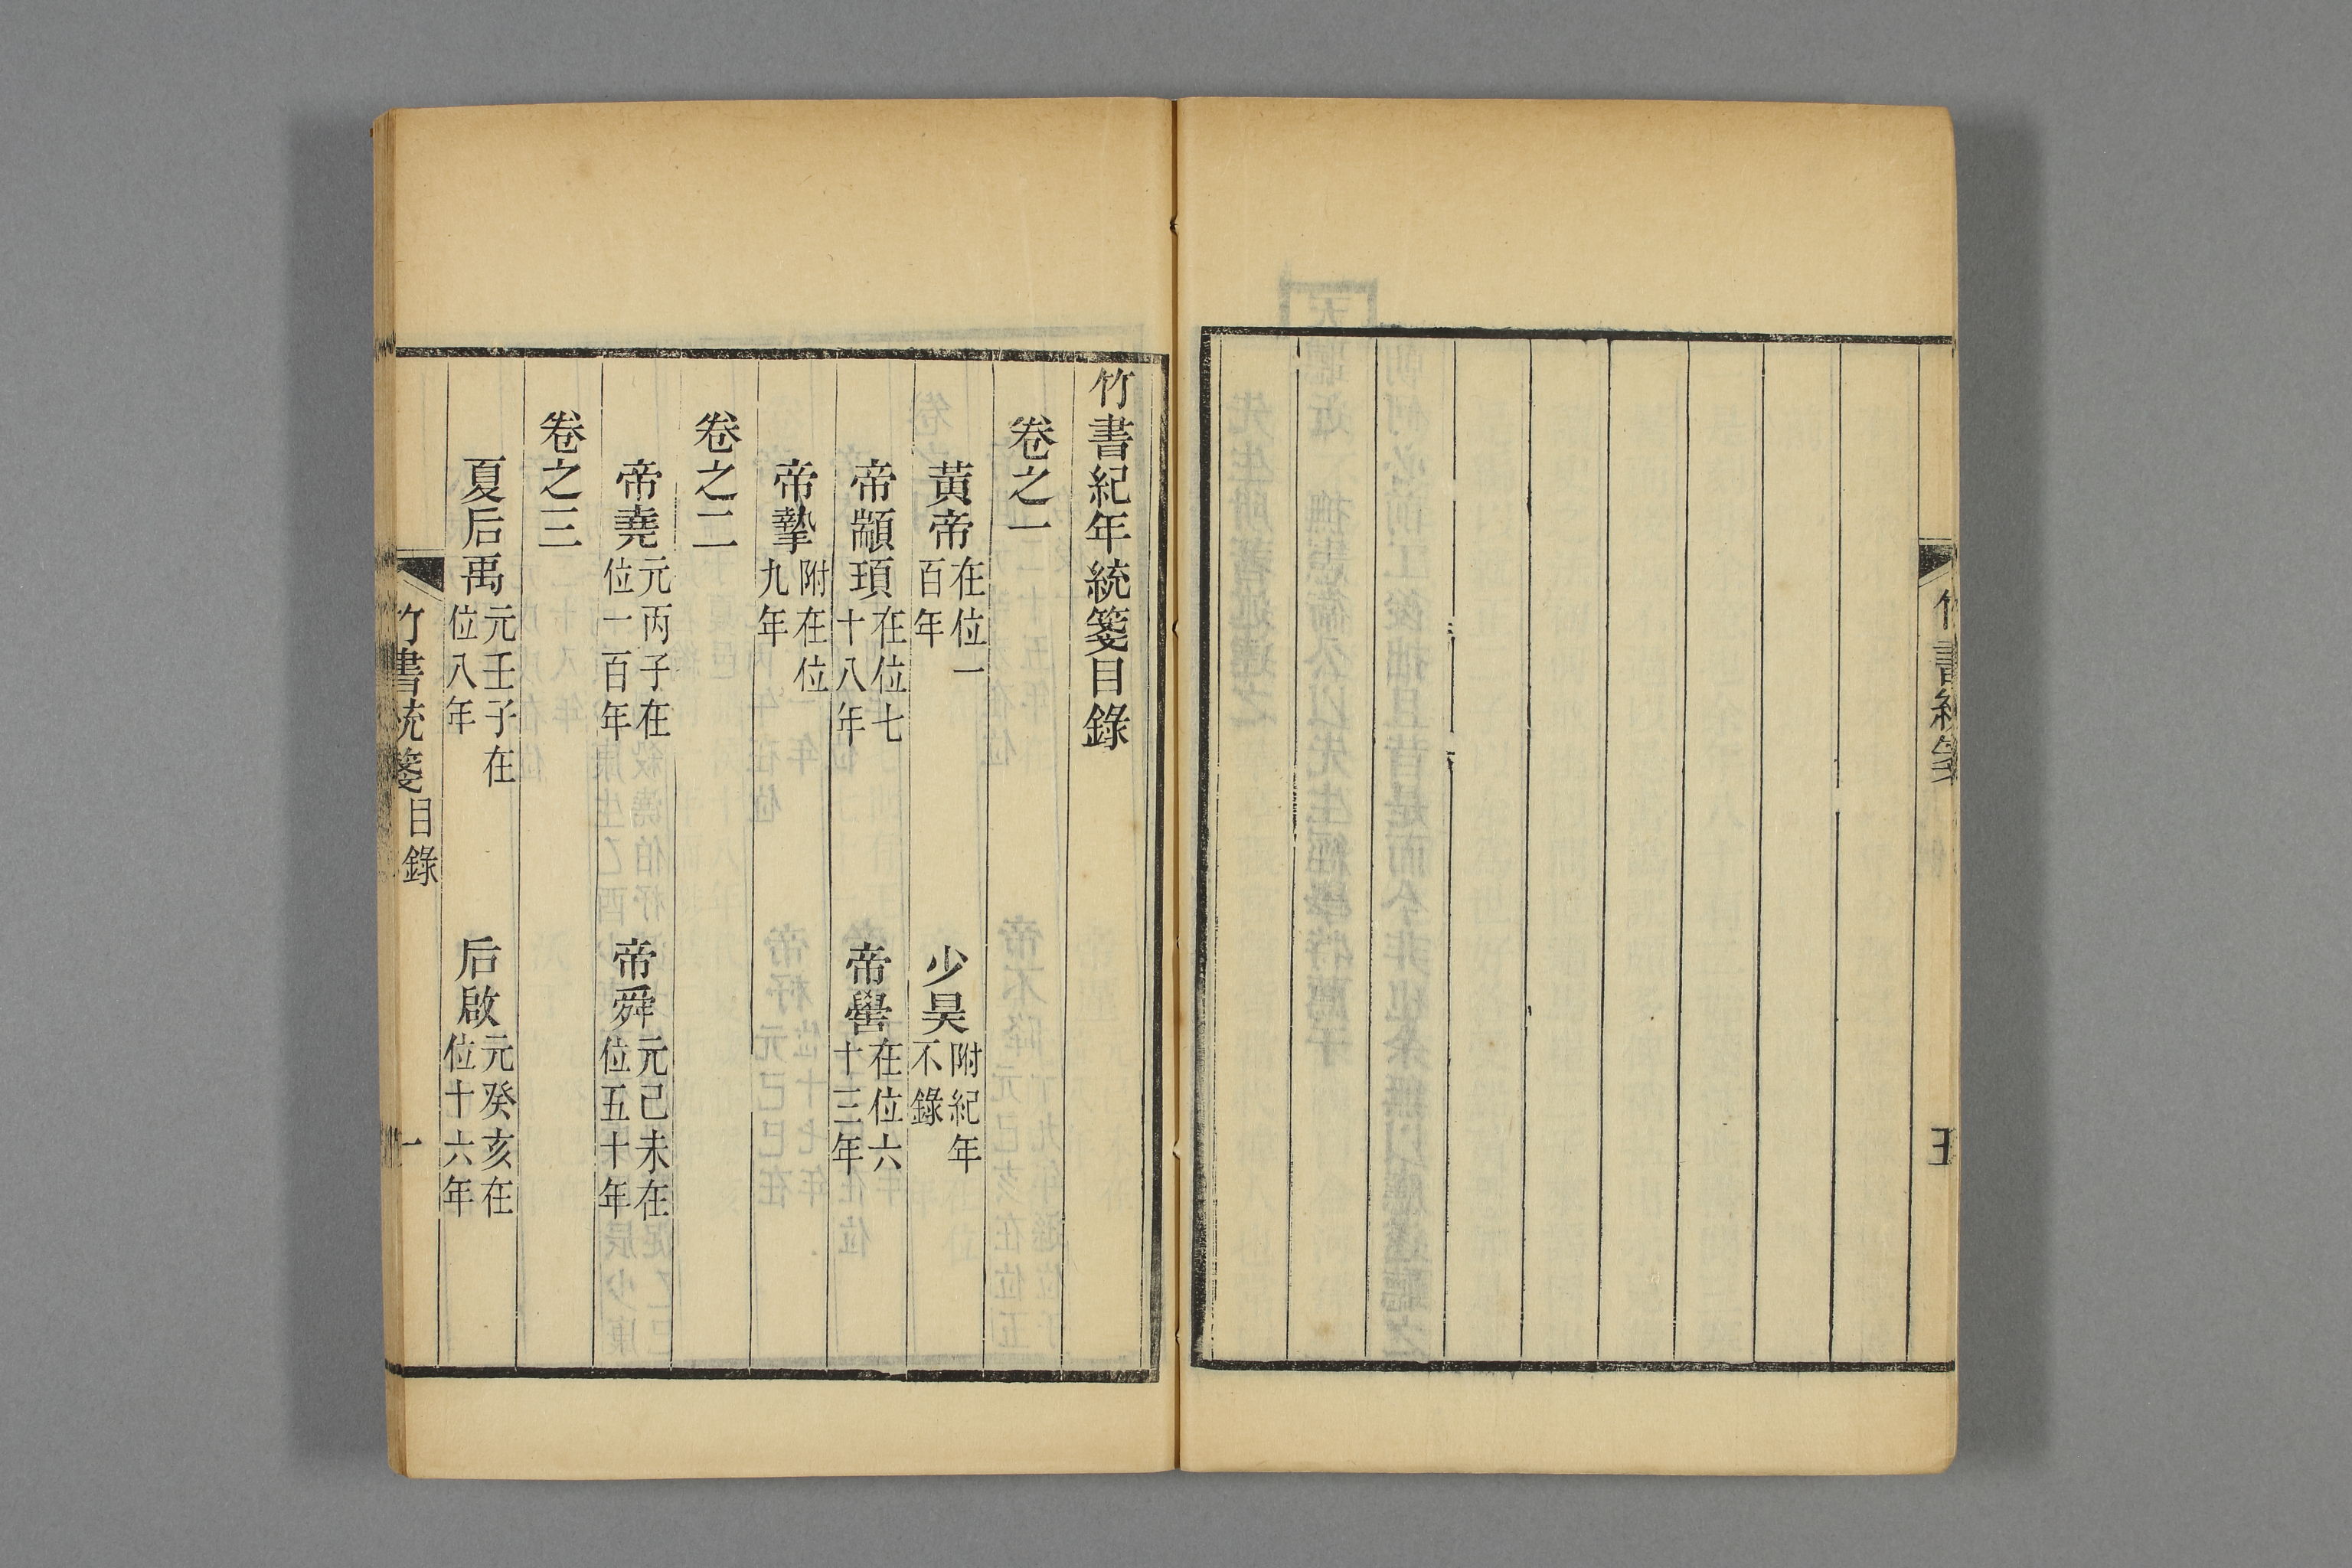 竹書統箋
五
竹書紀年統箋目錄
卷之一
黃帝在位一百年
少昊附紀年不錄
帝顓頊在位七十八年
帝嚳在位六十三年
帝摯附在位九年
卷之二
帝堯元丙子在位一百年
帝舜元己未在位五十年
卷之三
夏后禹元壬子在位八年
后啟元癸亥在位十六年
竹書統箋 目錄
一